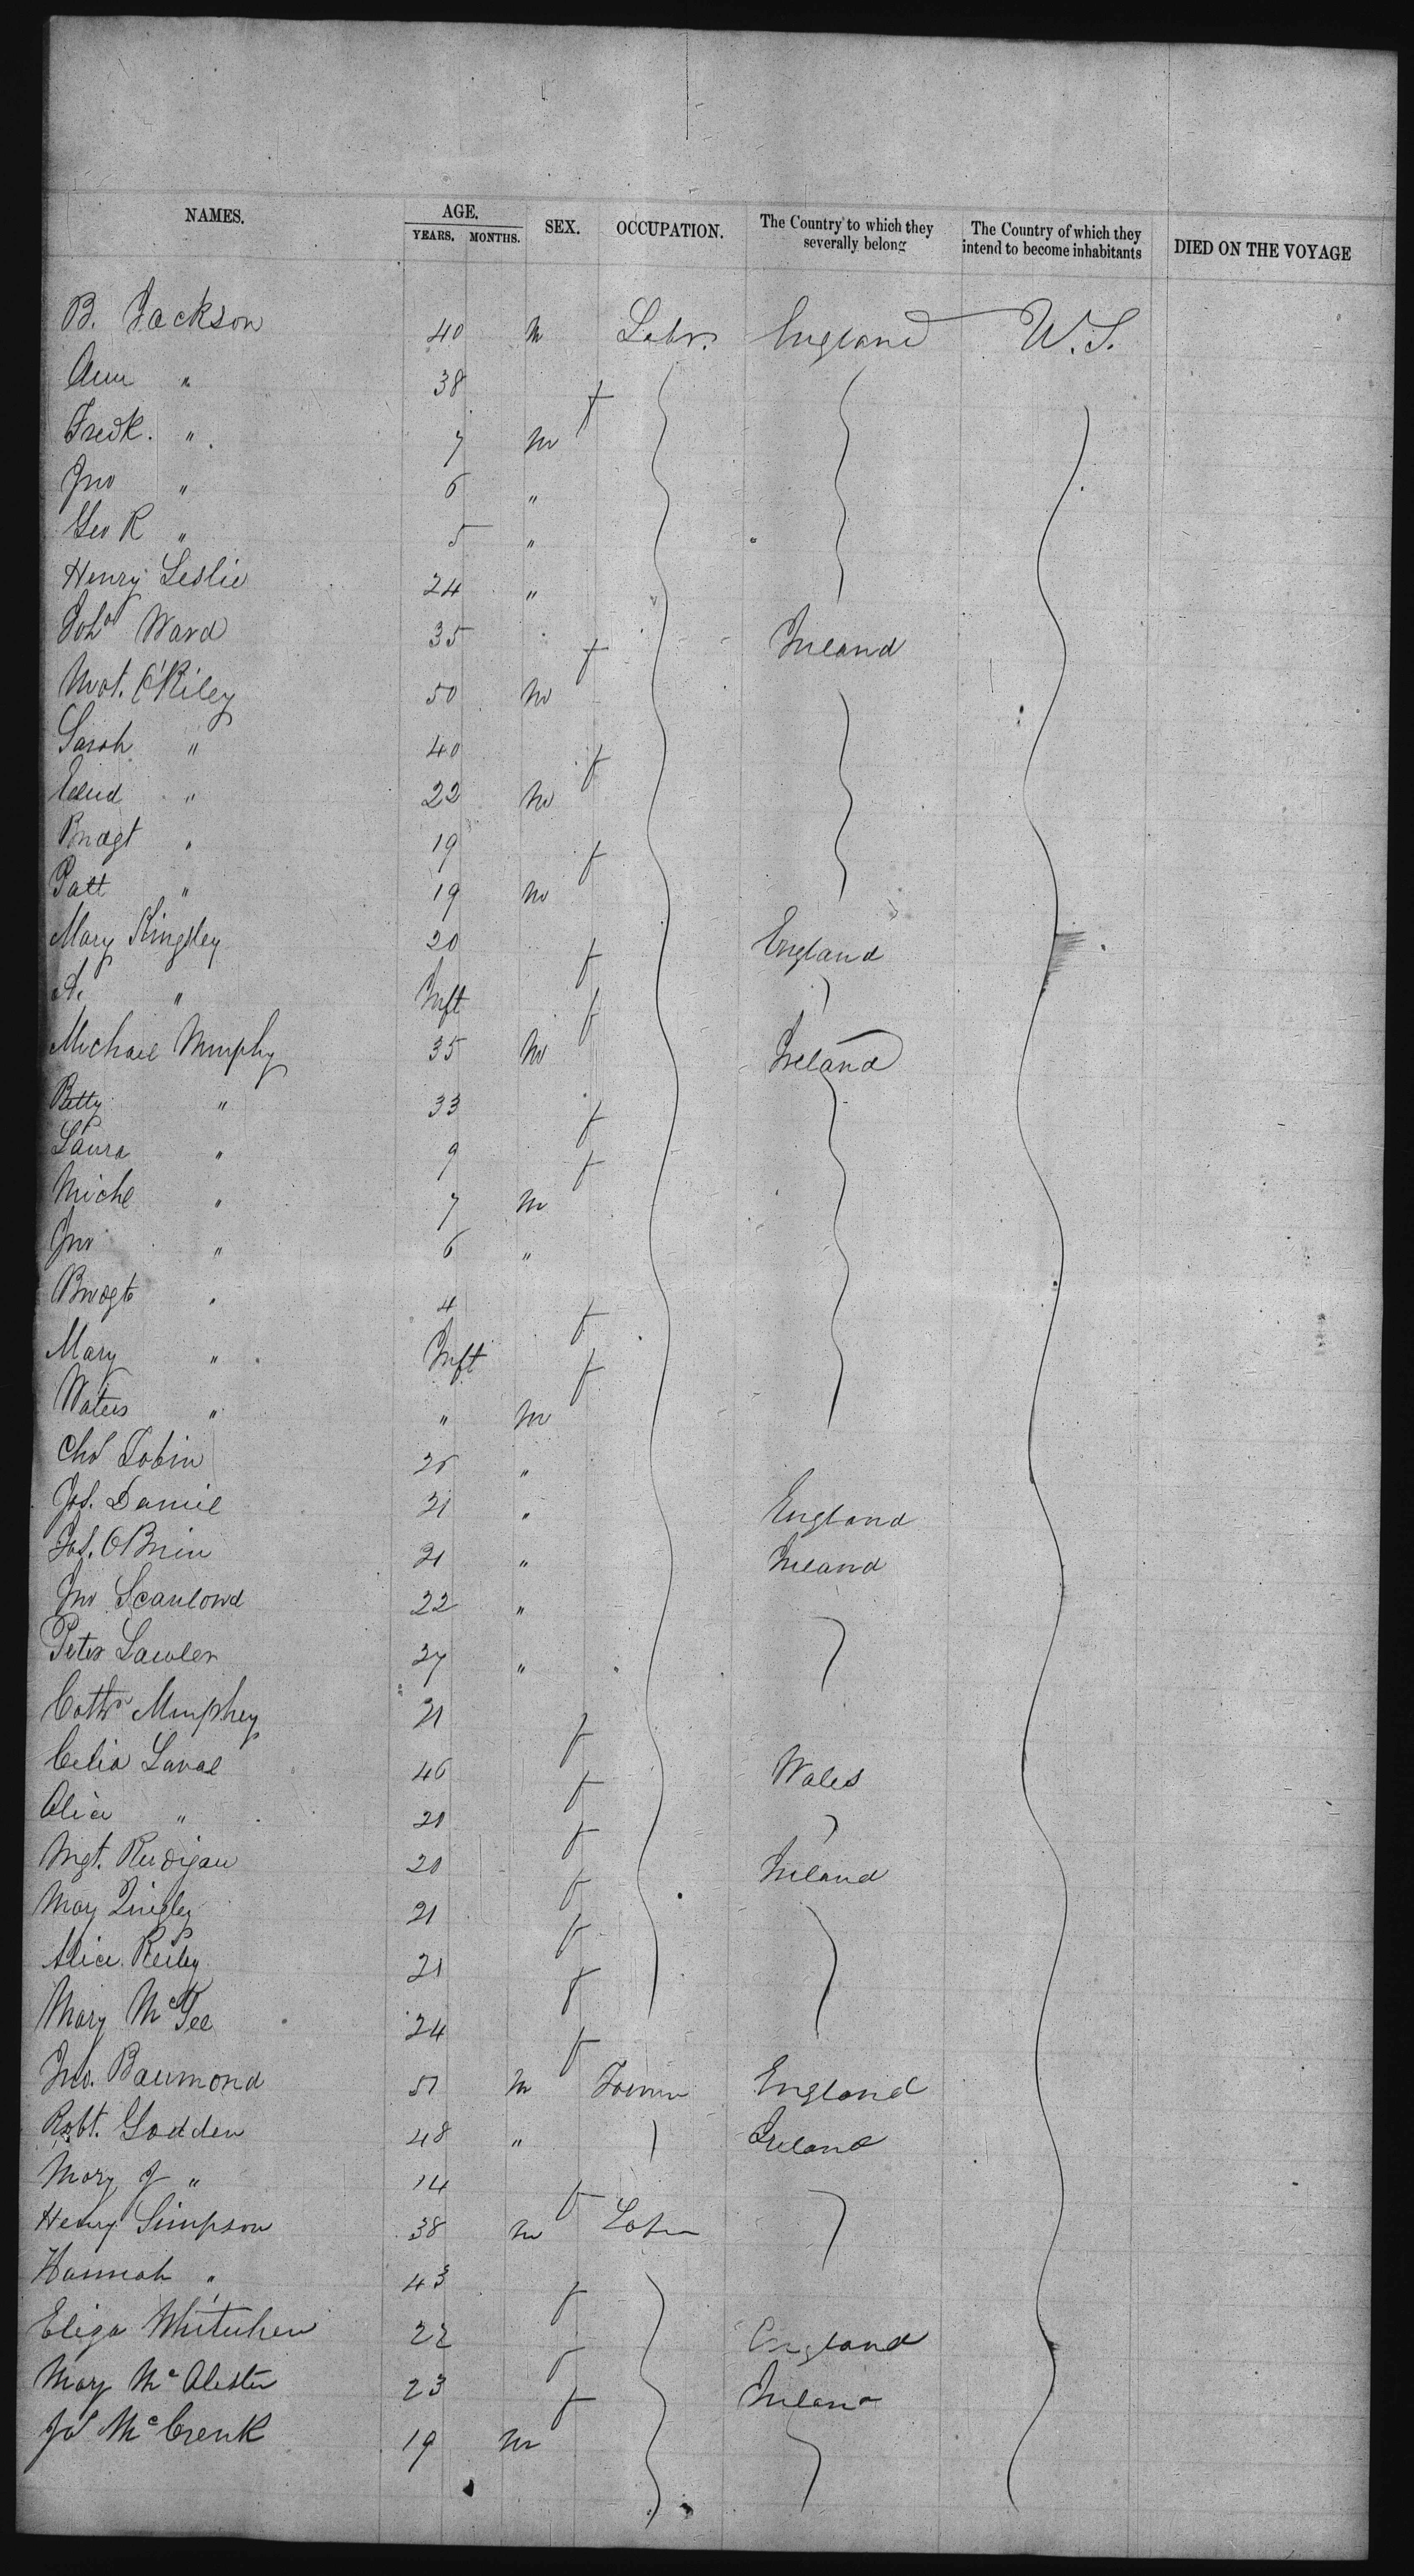 NAMES. AGE. YEARS. MONTHS. SEX. OCCUPATION. The Country to which they severally belong The Country of which they intend to become inhabitants DIED ON THE VOYAGE
B. Jackson 40 m Labr. England U.S.
Ann " 38 f
Fredk. " 7 m
Jno " 6 "
Geo R " 5 "
Henry Leslie 24 "
Ward 35 f Ireland
O'Riley 50 m
Sarah " 40 f
Edmd " 22 m
Bridgt " 19 f
Patt " 19 m
Mary Kingsley 20 f England
A. " Inft f
Michael Murphy 35 m Ireland
Betty " 33 f
Laura " 9 f
Michl " 7 m
Jno " 6 "
Bridgt " 4 f
Mary " Inft f
Waters " " m
Chs Tobin 25 "
Jos. Daniel 21 " England
Jas. OBrien 21 " Ireland
Jno Scanlond 22 "
Peter Lawler 27 "
Cathn Murphey 21 f
Celia Laval 46 f Wales
Alice " 20 f
Mgt. 20 f Ireland
Mary 21 f
Alice Reiley 21 f
Mary McGee 24 f
Jno. Baumond 51 m Farmer England
Robt. Godden 48 " Ireland
Mary J " 14 f
Henry Simpson 38 m Labr
Hannah " 43 f
Eliza 22 f England
Mary McAlester 23 f Ireland
Js McCrenk 19 m